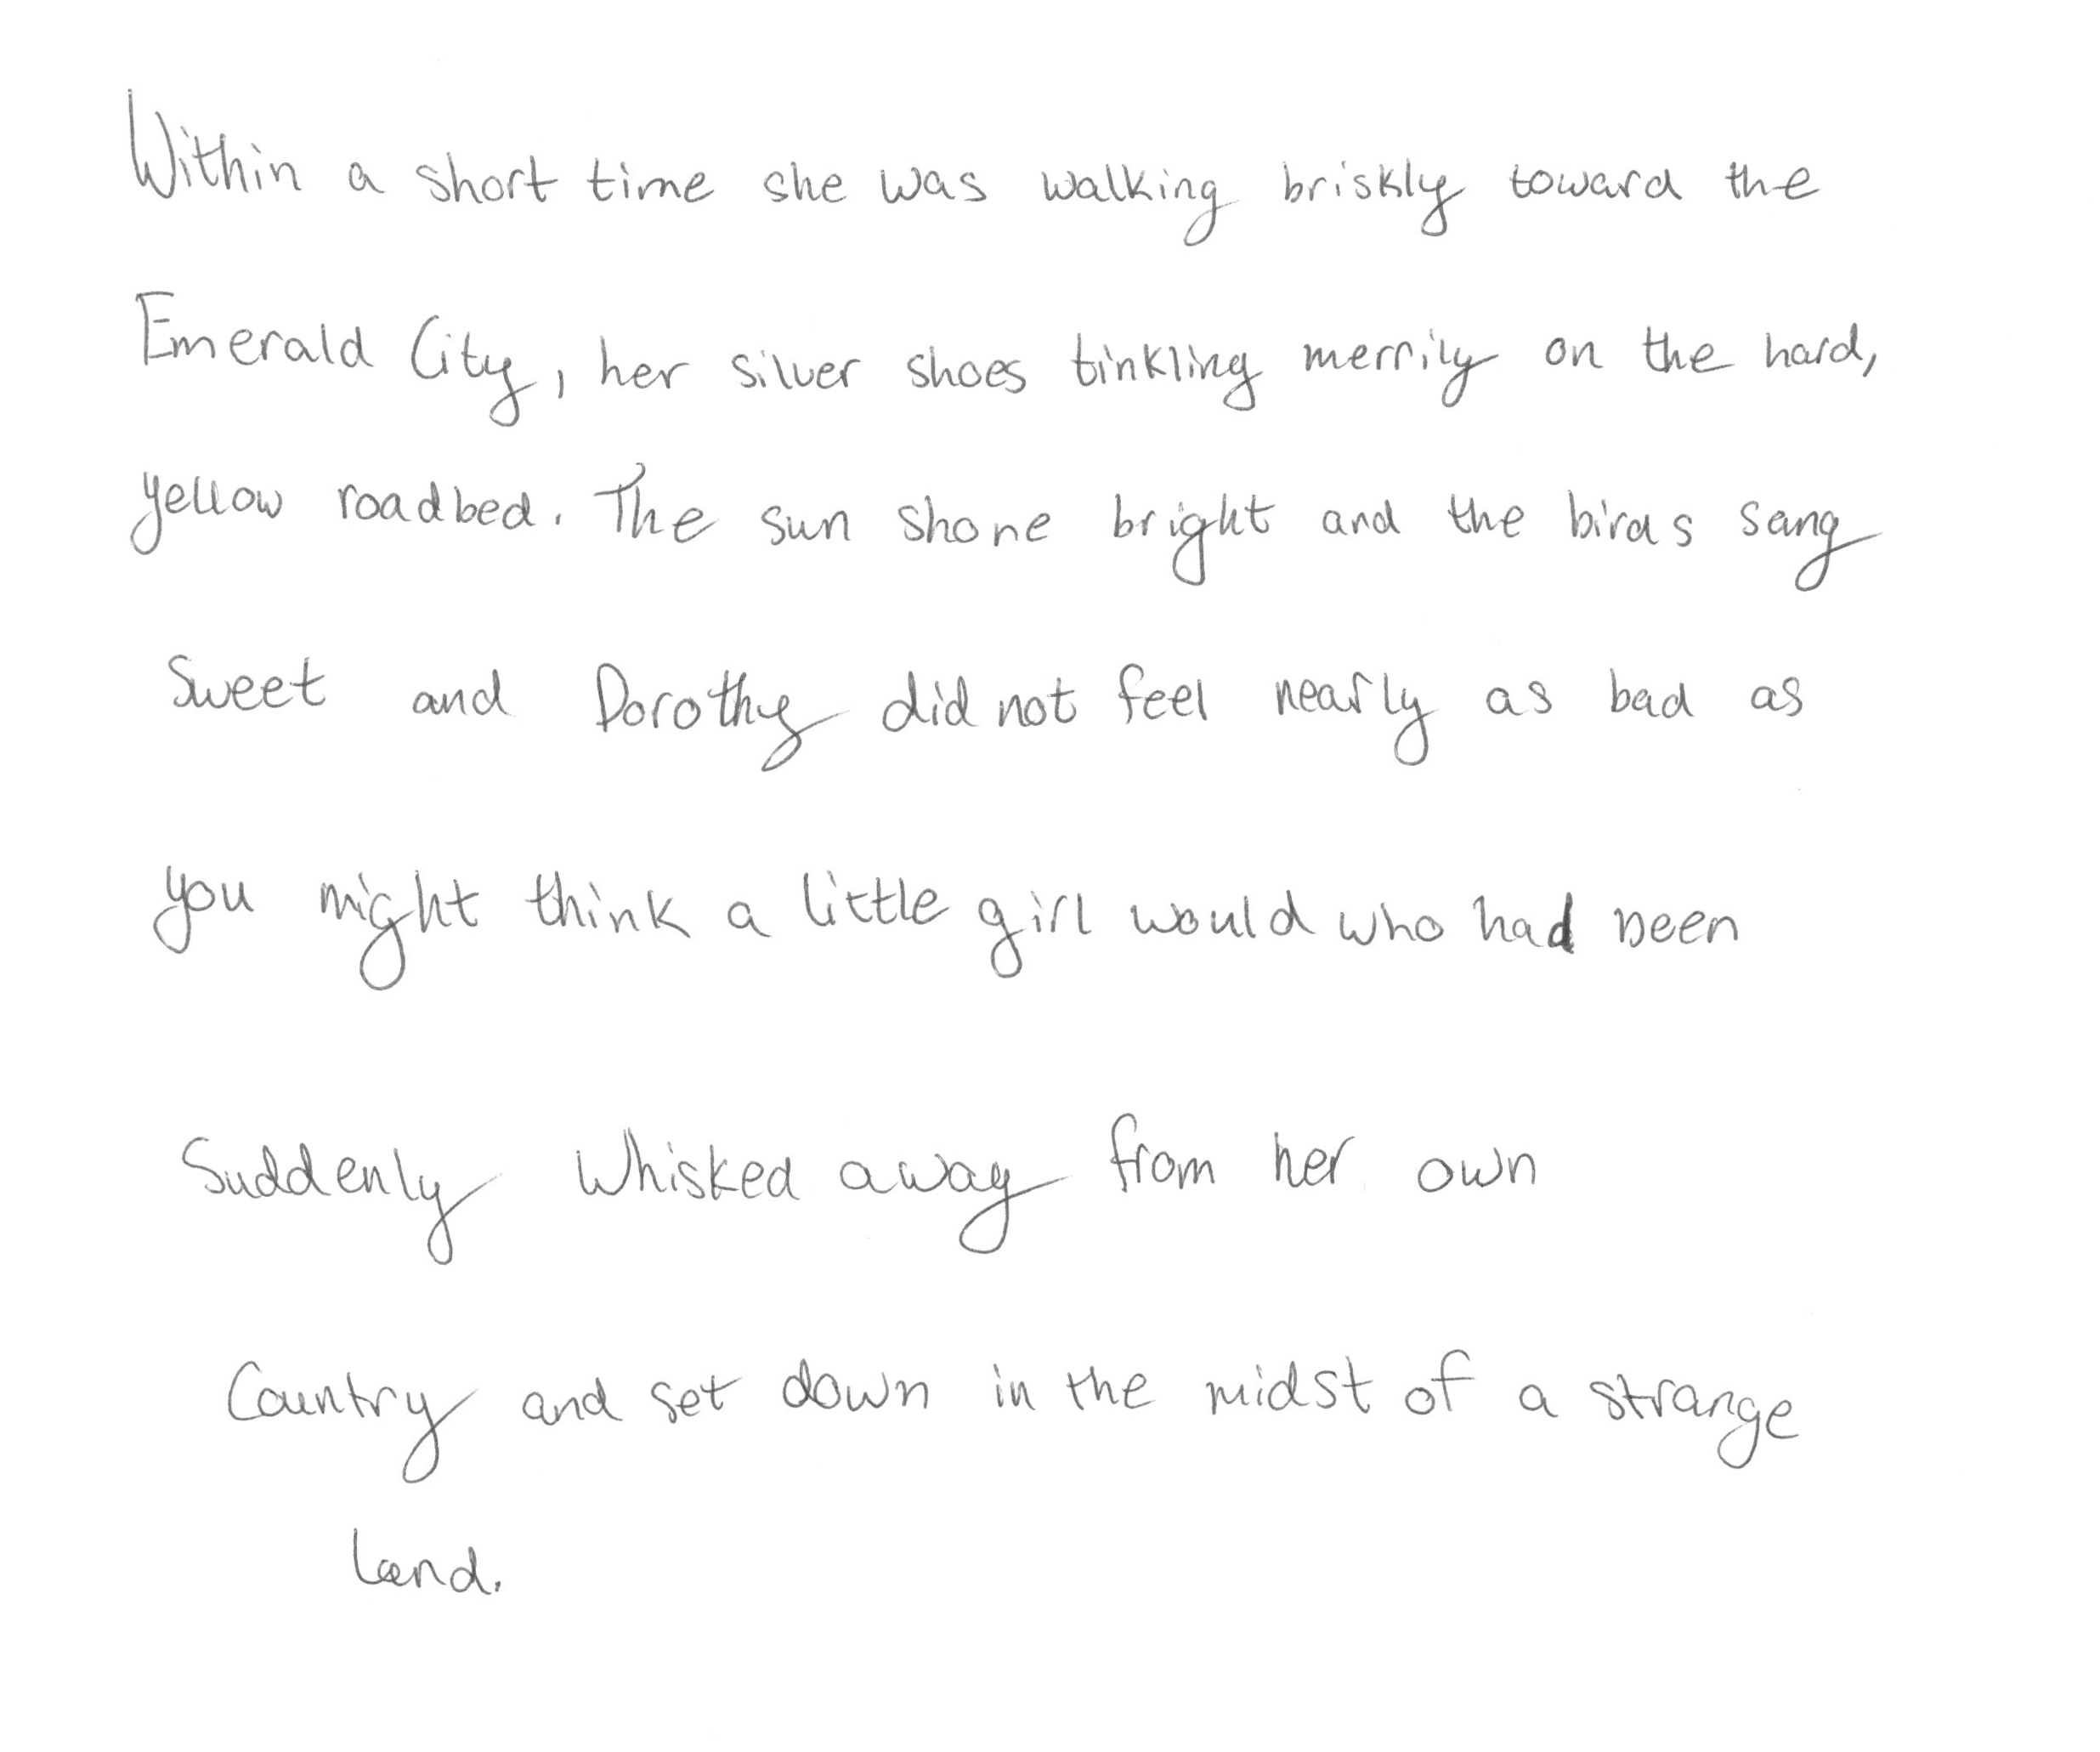 Within a short time she was walking briskly toward the
Emerald City, her silver shoes tinkling merrily on the hard,
yellow roadbed. The sun shone bright and the birds sang
Sweet and Dorothy did not feel nearly as bad as
you might think a little girl would who had been
Suddenly Whisked away from her own
Country and set down in the midst of a strange
land.